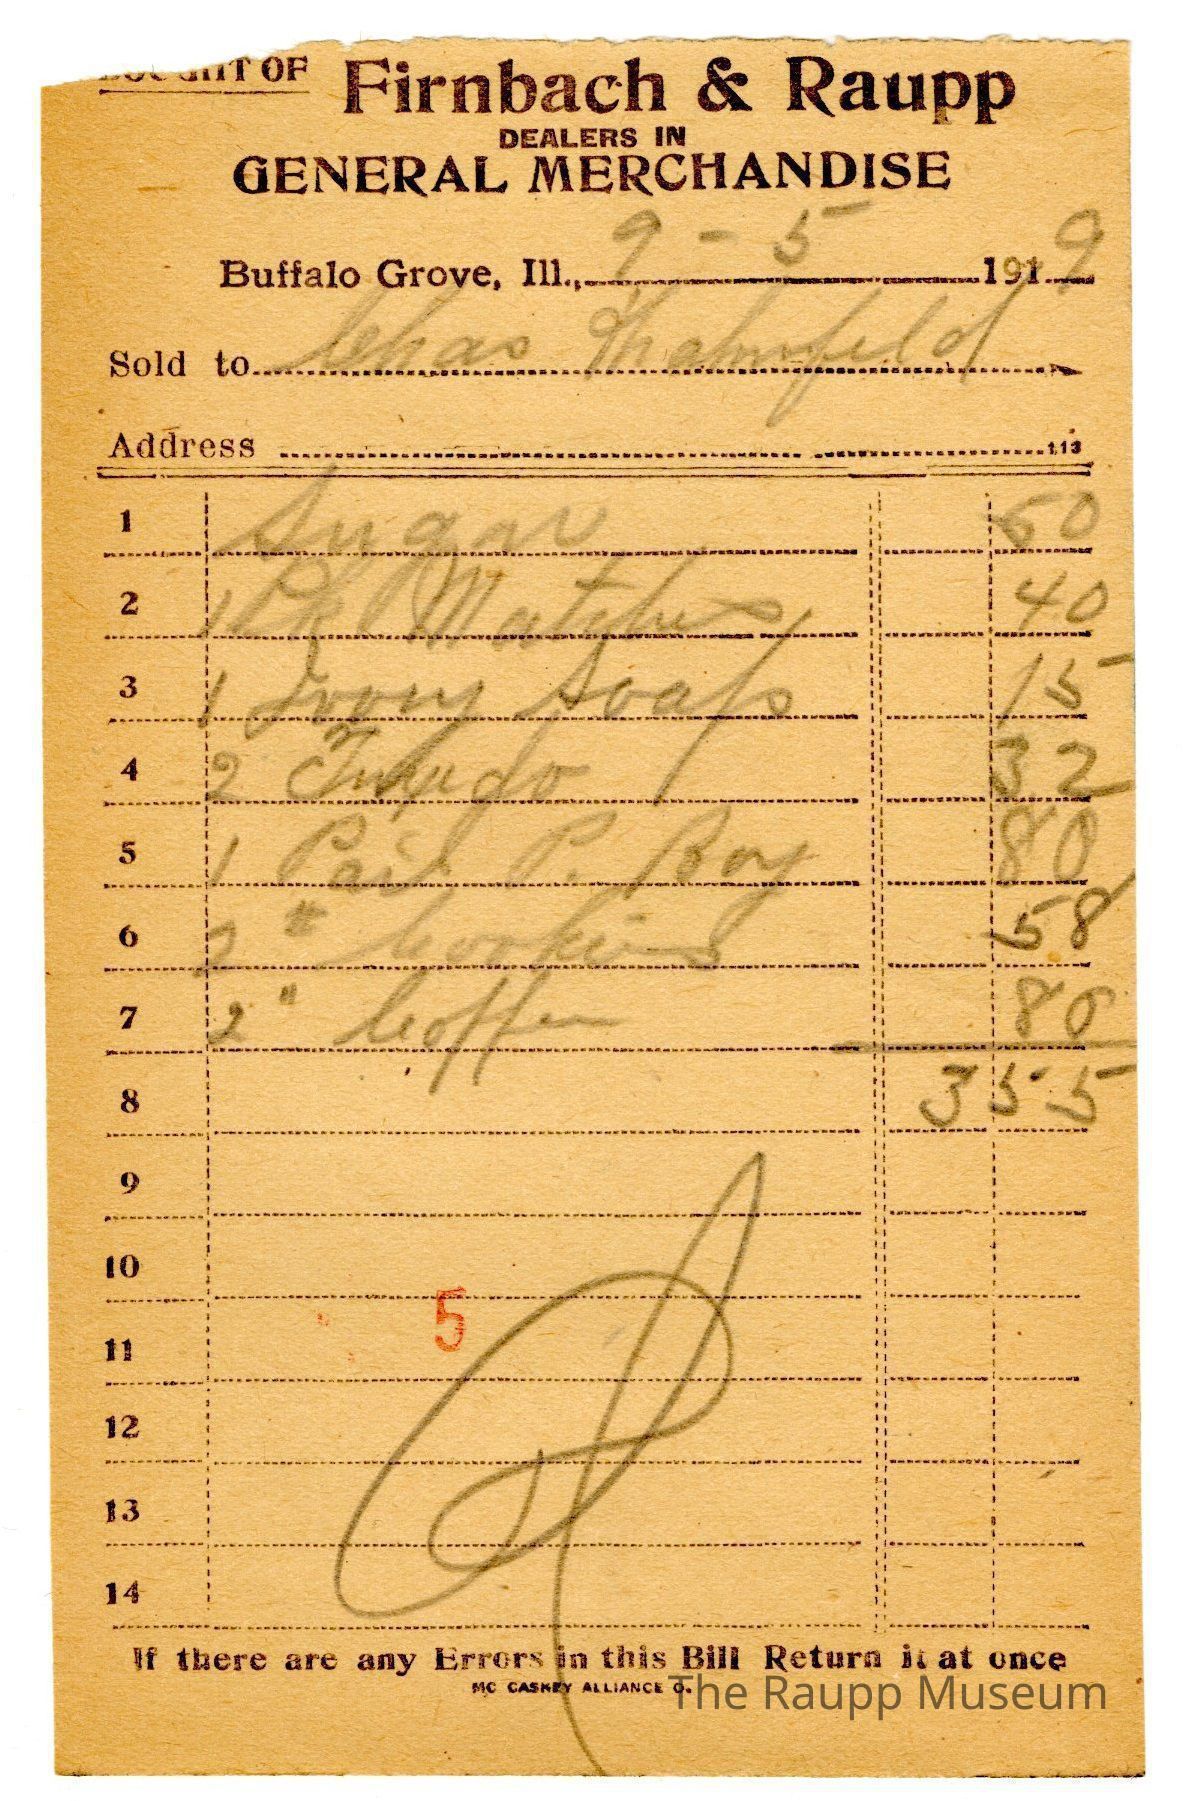 BOUGHT OF Firnbach & Raupp
DEALERS IN
GENERAL MERCHANDISE
Buffalo Grove, Ill., 9 - 5 1919
Sold to Chas
Address 113
1 Sugar 50
2 1 Pk Matches 40
3 1 Ivory Soap 15
4 2 Tuxedo 32
5 1 Pail P. Boy 80
6 2 " 58
7 2 " Coffee 80
8 3 55
9
10
5
11
12
13
14
If there are any Errors in this Bill Return it at once
MC CASKEY ALLIANCE O.
The Raupp Museum